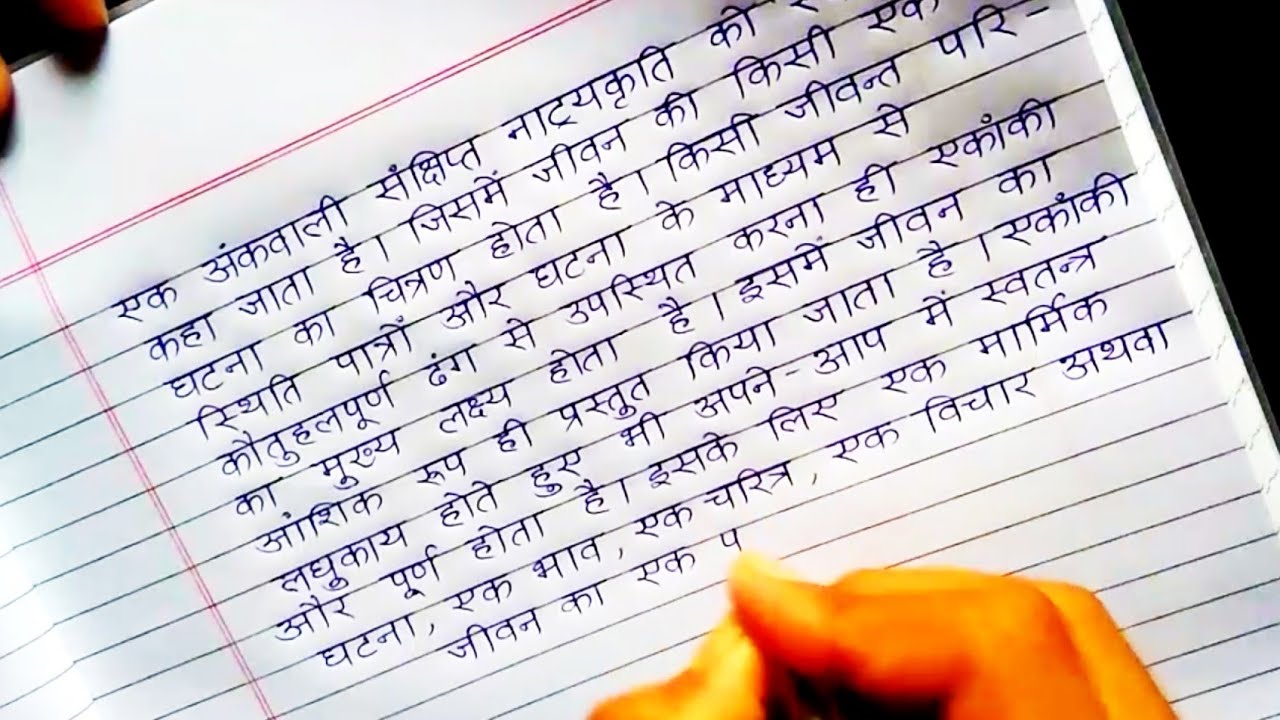 एक अंकवाली संक्षिप्त नाट्यकृति को
कहा जाता है। जिसमें जीवन की किसी एक
घटना का चित्रण होता है। किसी जीवन्त परि-
स्थिति पात्रों और घटना के माध्यम से
कौतुहलपूर्ण ढंग से उपस्थित करना ही एकाँकी
का मुख्य लक्ष्य होता है। इसमें जीवन का
आंशिक रूप ही प्रस्तुत किया जाता है। एकाँकी
लघुकाय होते हुए भी अपने-आप में स्वतन्त्र
और पूर्ण होता है। इसके लिए एक मार्मिक
घटना, एक भाव, एक चरित्र, एक विचार अथवा
जीवन का एक प